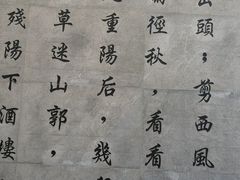 頭；剪西風
徑秋，看看
重陽后，幾
草迷山郭，
殘陽下酒樓